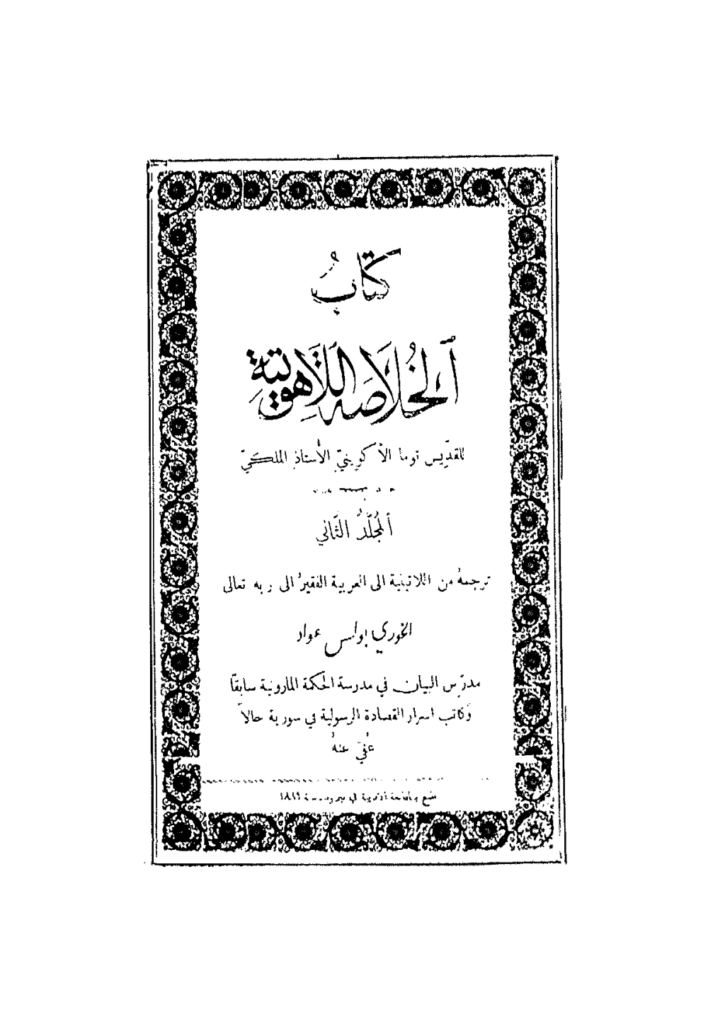 كتابُ
ٱلخُلاَصَة اللَّاهُوتِيَّةِ
للقدّيس توما الأكوينيّ الأستاذ الملكيّ
أَلمُجلَّدُ الثَّاني
ترجمهُ من اللاتينية الى العربية الفقيرُ الى ربه تعالى
الخوري بولس عواد
مدرّس البيان في مدرسة الحكمة المارونية سابقًا
وكاتب اسرار القصادة الرسولية في سورية حالاً
عُفيَ عنهُ
طبع بالمطبعة الادبية في بيروت سنة